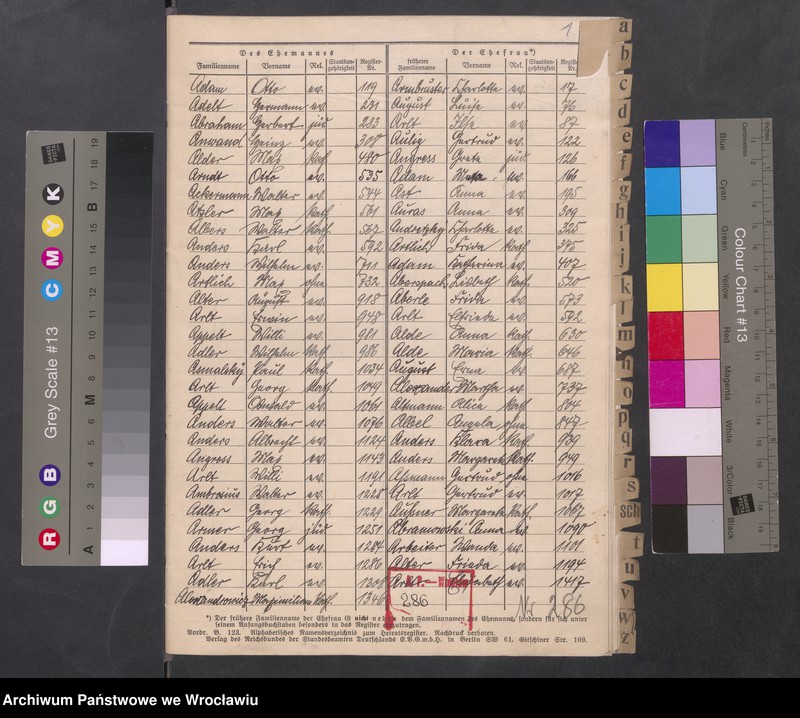 1
Des Ehemannes Der Ehefrau*)
Familienname Vorname Rel. Staatsangehörigkeit Register-Nr. früherer Familienname Vorname Rel. Staatsangehörigkeit Register-Nr.
Adam Otto ev. 119 Armbruster Charlotte ev. 17
Adelt Hermann ev. 231 August Luise ev. 76
Abraham Herbert jüd. 283 Arlt Ilse ev. 87
Anwand Heinz ev. 308 Aulig Gertrud ev. 122
Alder Max kath. 480 Angress Greta jüd. 126
Arndt Otto ev. 535 Adam ev. 166
Ackermann Walter ev. 544 Ast Anna ev. 195
Atzler Max kath. 561 Auras Anna ev. 309
Albers Walter kath. 567 Andretzky Charlotte ev. 325
Anders Karl ev. 592 Artlich Frida kath. 375
Anders Wilhelm ev. 711 Adam Katharina ev. 407
Artlich Max ohne 732 Aberspach Lisbeth kath. 520
Alter August ev. 918 Aberle Frida ev. 573
Arlt Erwin ev. 948 Arlt Elfriede ev. 592
Appelt Willi ev. 981 Alde Anna kath. 630
Adler Wilhelm kath. 986 Alde Maria kath. 646
Asmalsky Paul kath. 1034 August Erna ev. 687
Arlt Georg kath. 1049 Alexander Martha ev. 737
Appelt Oswald ev. 1061 Altmann Alice kath. 804
Anders Walter ev. 1076 Albel Angela ohne 847
Anders Albrecht ev. 1124 Anders Klara kath. 939
Angress Max 1143 Anders Margarete kath. 949
Arlt Willi ev. 1191 Assmann Gertrud ohne 1016
Ambrosius Walter ev. 1228 Arlt Gertrud ev. 1017
Adler Georg kath. 1229 Aussner Margarete kath. 1067
Armer Georg jüd. 1251 Abramowski Anna 1090
Anders Kurt ev. 1284 Arbeiter Wanda ev. 1101
Arlt Erich ev. 1286 Alter Frieda ev. 1194
Adler Karl ev. 1308 ev. 1417
Alexandrowicz Maximilian kath. 1346
286
Nr 286
*) Der frühere Familienname der Ehefrau ist nicht neben dem Familiennamen des Ehemanns, sondern für sich unter
seinem Anfangsbuchstaben besonders in das Register einzutragen.
Vordr. B. 123. Alphabetisches Namensverzeichnis zum Heiratsregister. Nachdruck verboten.
Verlag des Reichsbundes der Standesbeamten Deutschlands E.V.G.m.b.H. in Berlin SW 61, Gitschiner Str. 109.
a
b
c
d
e
f
g
h
i
j
k
l
m
n
o
p
q
r
s
sch
t
u
v
w
z
Grey Scale #13
R G B C M Y K
A 1 2 3 4 5 6 M 8 9 10 11 12 13 14 15 B 17 18 19
Colour Chart #13
Blue
Cyan
Green
Yellow
Red
Magenta
White
3/Color
Black
Centimetres
Inches
Archiwum Państwowe we Wrocławiu